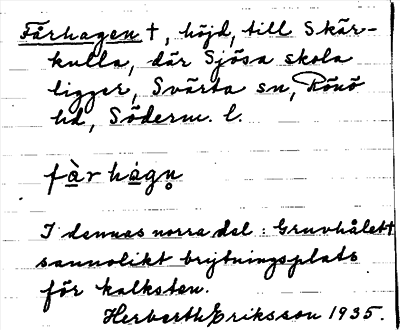 Fårhagen †, höjd, till Skär-
kulla, där Sjösa skola
ligger, Svärta sn, Rönö
hd, Söderm. l.
fàr hágn̥
I dennas norra del: Gruvhålet†
sannolikt brytningsplats
för kalksten.
Herberth Eriksson 1935.